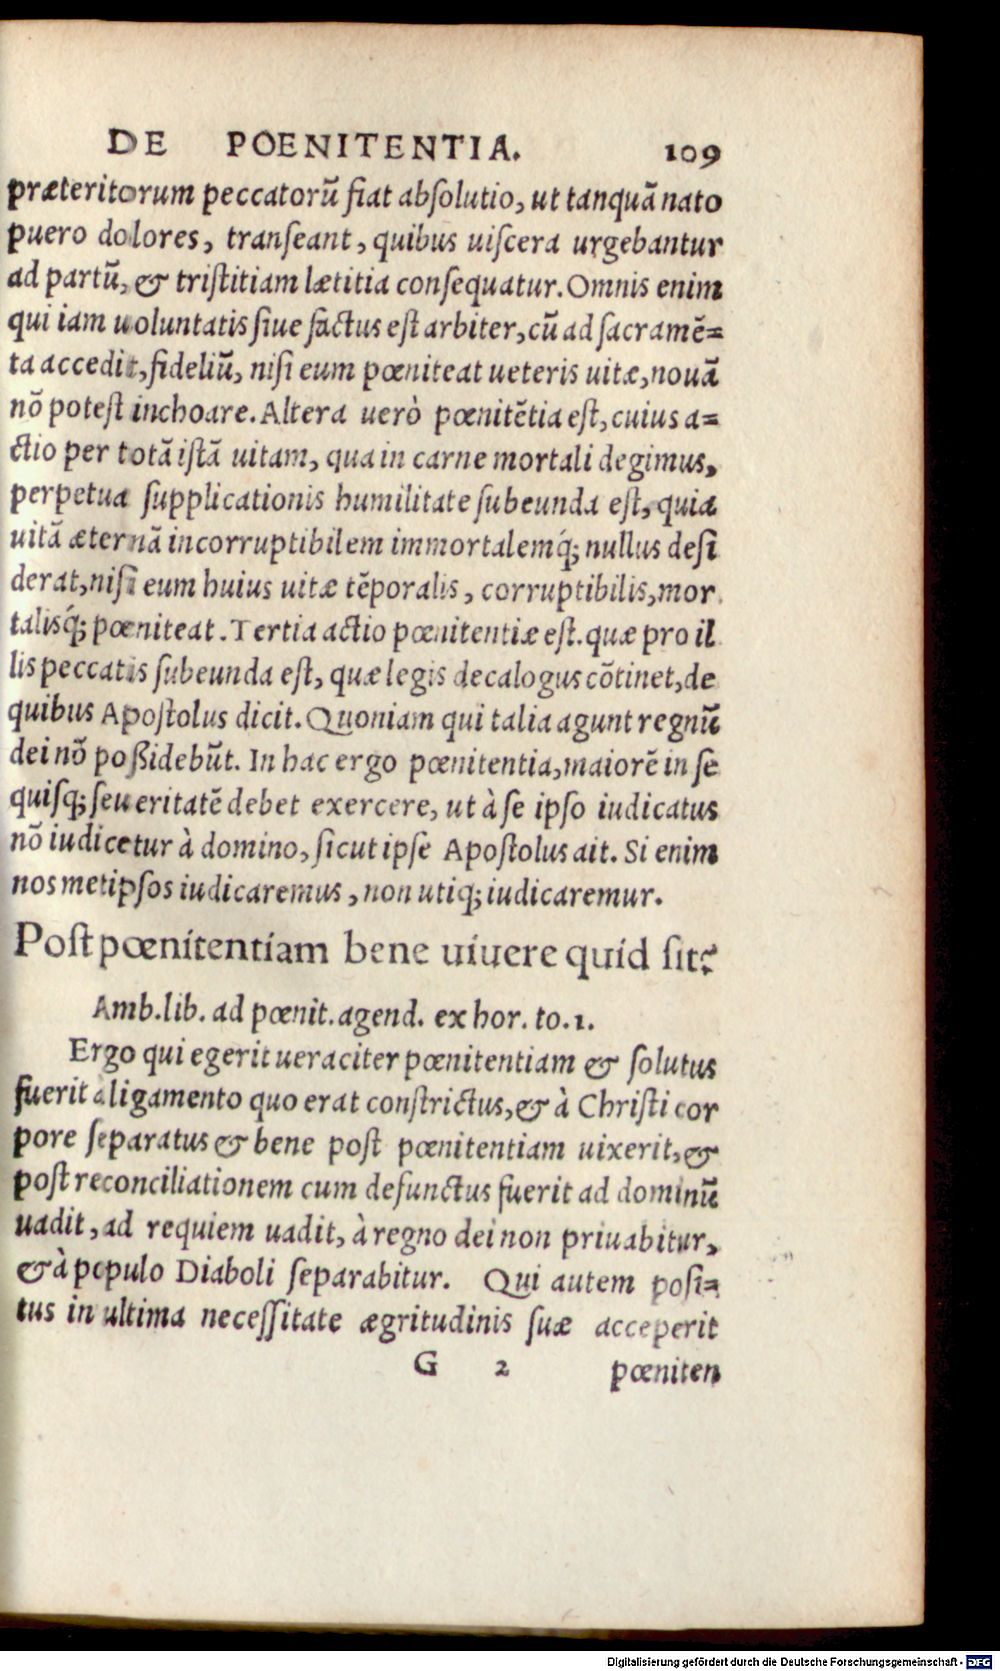 DE POENITENTIA. 109
præteritorum peccatorū fiat absolutio, ut tanquā nato
puero dolores, transeant, quibus uiscera urgebantur
ad partū, & tristitiam lætitia consequatur. Omnis enim
qui iam uoluntatis siue factus est arbiter, cū ad sacramē=
ta accedit, fideliū, nisi eum pœniteat ueteris uitæ, nouā
nō potest inchoare. Altera uerò pœnitētia est, cuius a=
ctio per totā istā uitam, qua in carne mortali degimus,
perpetua supplicationis humilitate subeunda est, quia
uitā æternā incorruptibilem immortalemq́; nullus desi
derat, nisi eum huius uitæ tēporalis, corruptibilis, mor
talisq́; pœniteat. Tertia actio pœnitentiæ est. quæ pro il
lis peccatis subeunda est, quæ legis decalogus cōtinet, de
quibus Apostolus dicit. Quoniam qui talia agunt regnū
dei nō poßidebūt. In hac ergo pœnitentia, maiorē in se
quisq; seueritatē debet exercere, ut à se ipso iudicatus
nō iudicetur à domino, sicut ipse Apostolus ait. Si enim
nosmetipsos iudicaremus, non utiq; iudicaremur.
Post pœnitentiam bene uiuere quid sit?
Amb. lib. ad pœnit. agend. ex hor. to. 1.
Ergo qui egerit ueraciter pœnitentiam & solutus
fuerit à ligamento quo erat constrictus, & à Christi cor
pore separatus & bene post pœnitentiam uixerit, &
post reconciliationem cum defunctus fuerit ad dominū
uadit, ad requiem uadit, à regno dei non priuabitur,
& à populo Diaboli separabitur. Qui autem posi=
tus in ultima necessitate ægritudinis suæ acceperit
G 2 pœniten
Digitalisierung gefördert durch die Deutsche Forschungsgemeinschaft - DFG